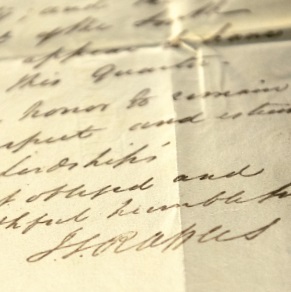 of the
appear
this quarter
honor to remain
respect and esteem
Lordship's
t obliged and
thful humble
T S Raffles